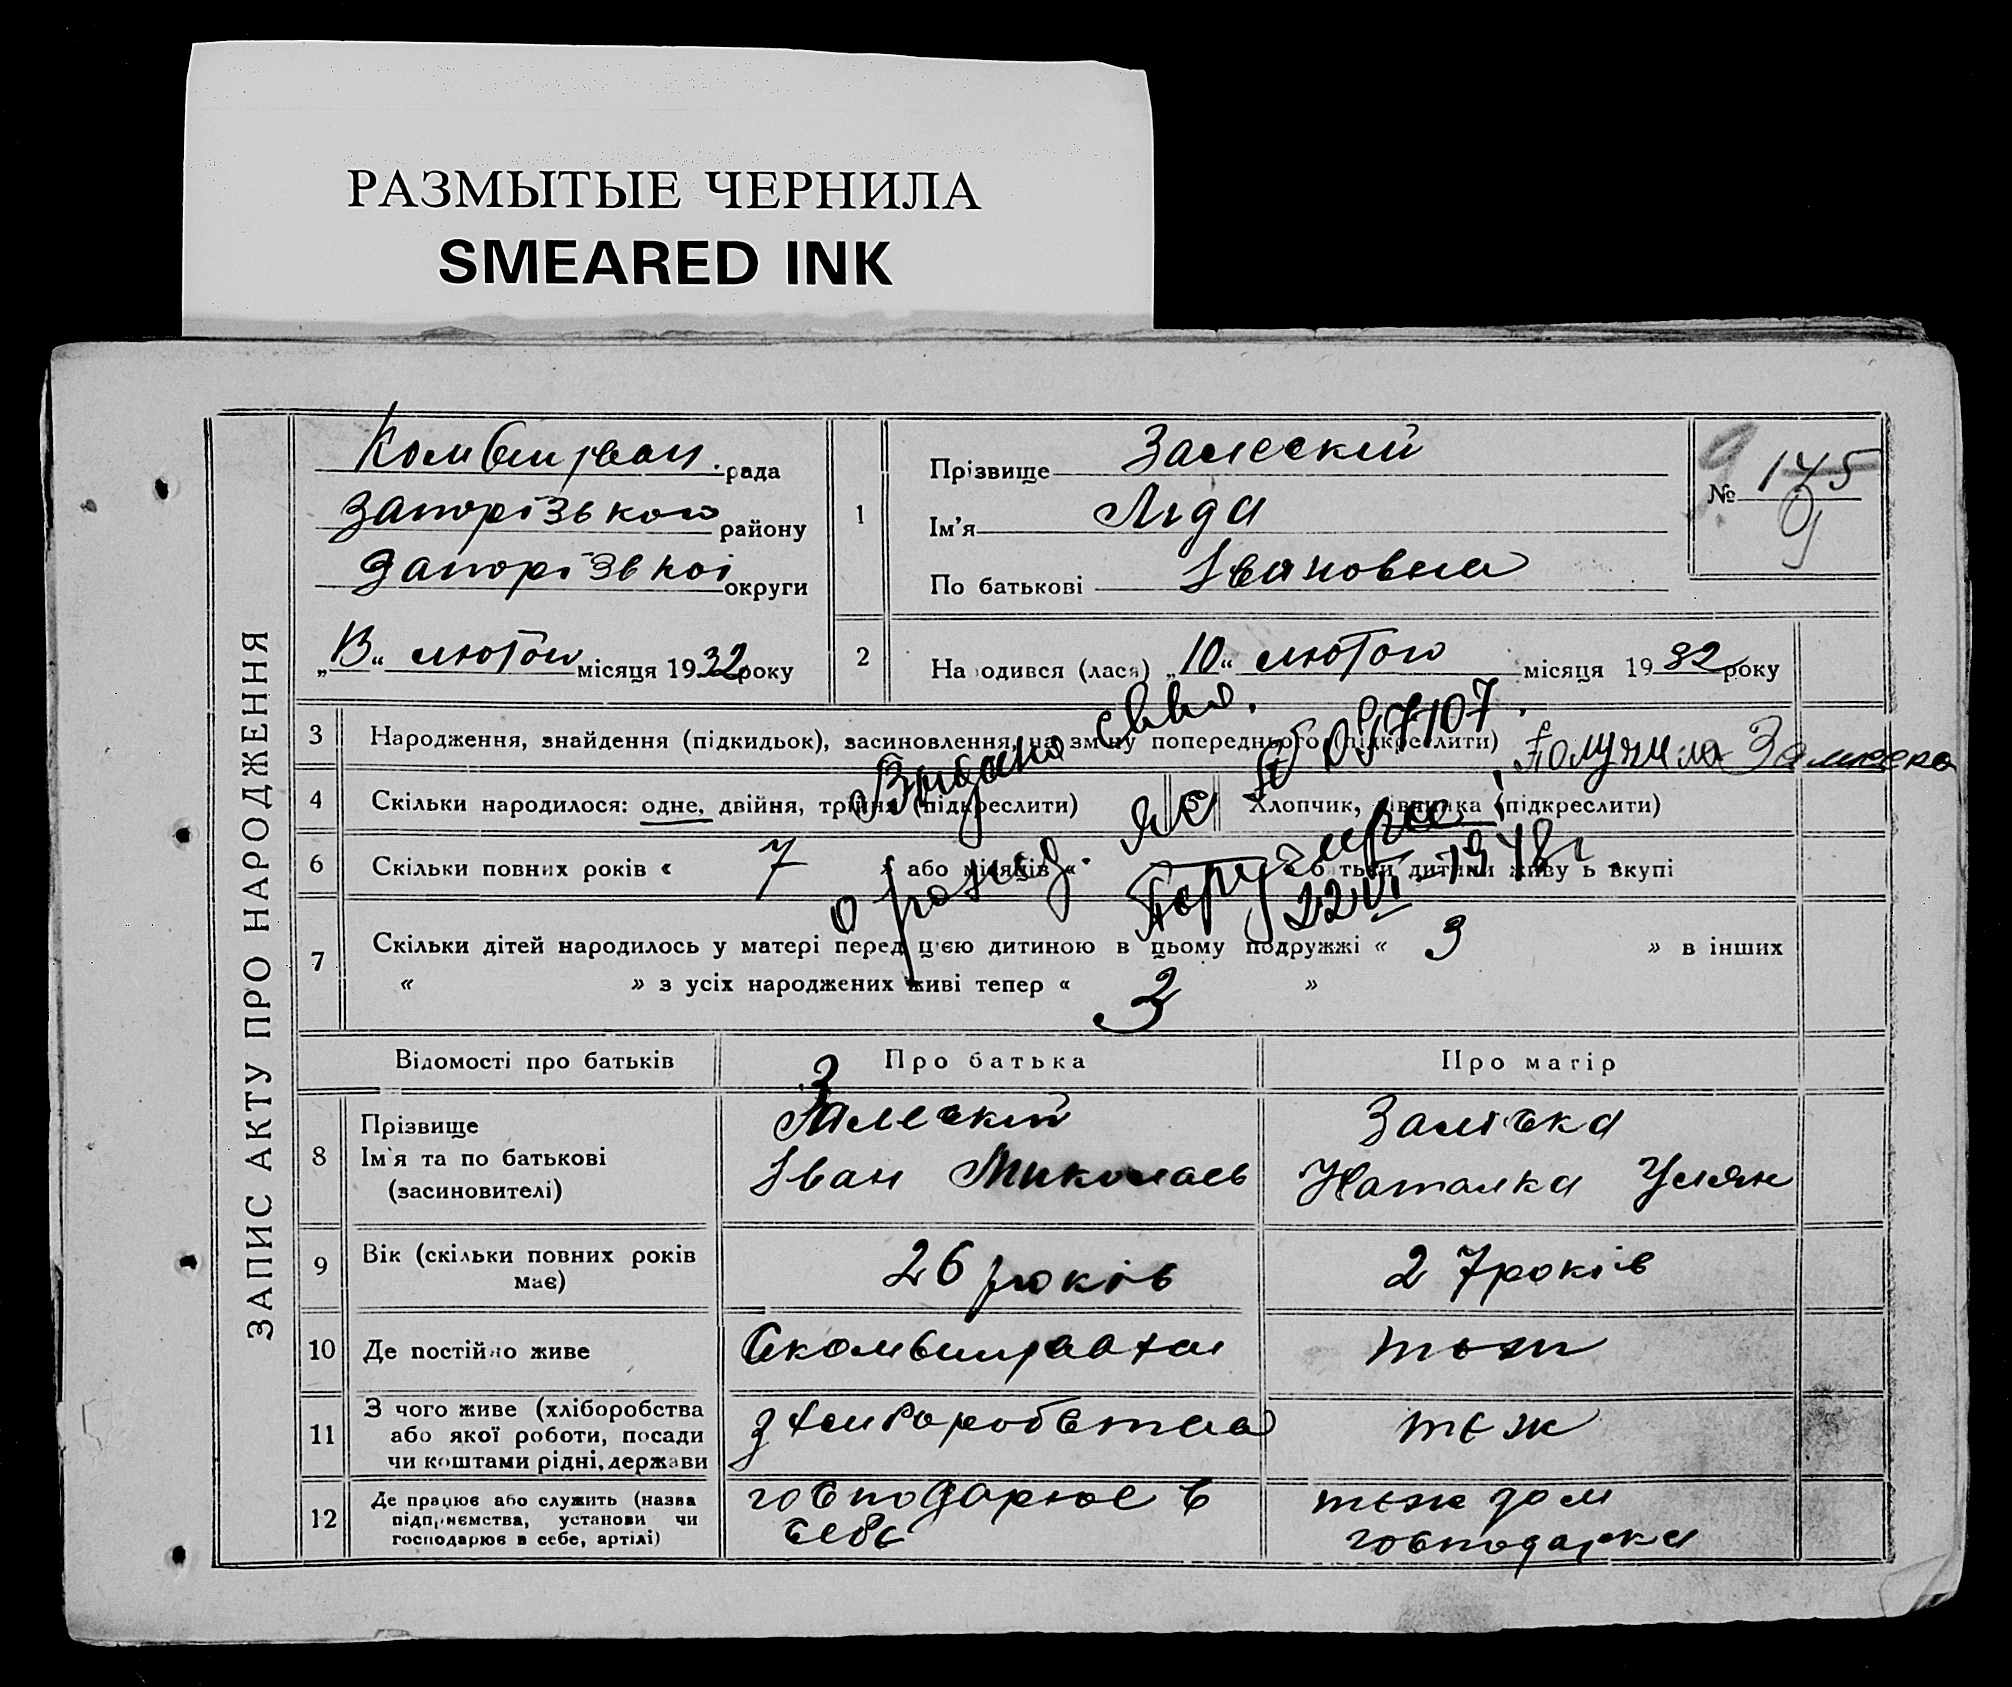 РАЗМЫТЫЕ ЧЕРНИЛА
SMEARED INK
ЗАПИС АКТУ ПРО НАРОДЖЕННЯ
рада
Запорізького району
Запорізької округи
„13“ лютого місяця 1932 року
1
Прізвище Залеский
Ім'я Ліда
По батькові Івановна
№ 175
9
2
Народився (лася) „10“ лютого місяця 1932 року
3 Народження, знайдення (підкидьок), засиновлення, на зміну попереднього (підкреслити)
4 Скільки народилося: одне, двійня, трійня (підкреслити)
5 Хлопчик, дівчинка (підкреслити)
6 Скільки повних років « 7 » або місяців « батьки дитини живуть вкупі
7 Скільки дітей народилось у матері перед цією дитиною в цьому подружжі « 3 » в інших
« » з усіх народжених живі тепер « 3 »
Выдано св-во
о рожд. 097107.
Получила
22 VI 1948 г.
Відомості про батьків
Про батька
Про матір
8 Прізвище
Ім'я та по батькові
(засиновителі)
Залеский
Іван Миколаєв
Заліска
Наталка Улян
9 Вік (скільки повних років має)
26 років
27 років
10 Де постійно живе
тож
11 З чого живе (хліборобства
або якої роботи, посади
чи коштами рідні, держави
з хлиборобства
теж
12 Де працює або служить (назва
підприємства, установи чи
господарює в себе, артілі)
господарює в
себе
теж дом
господарка